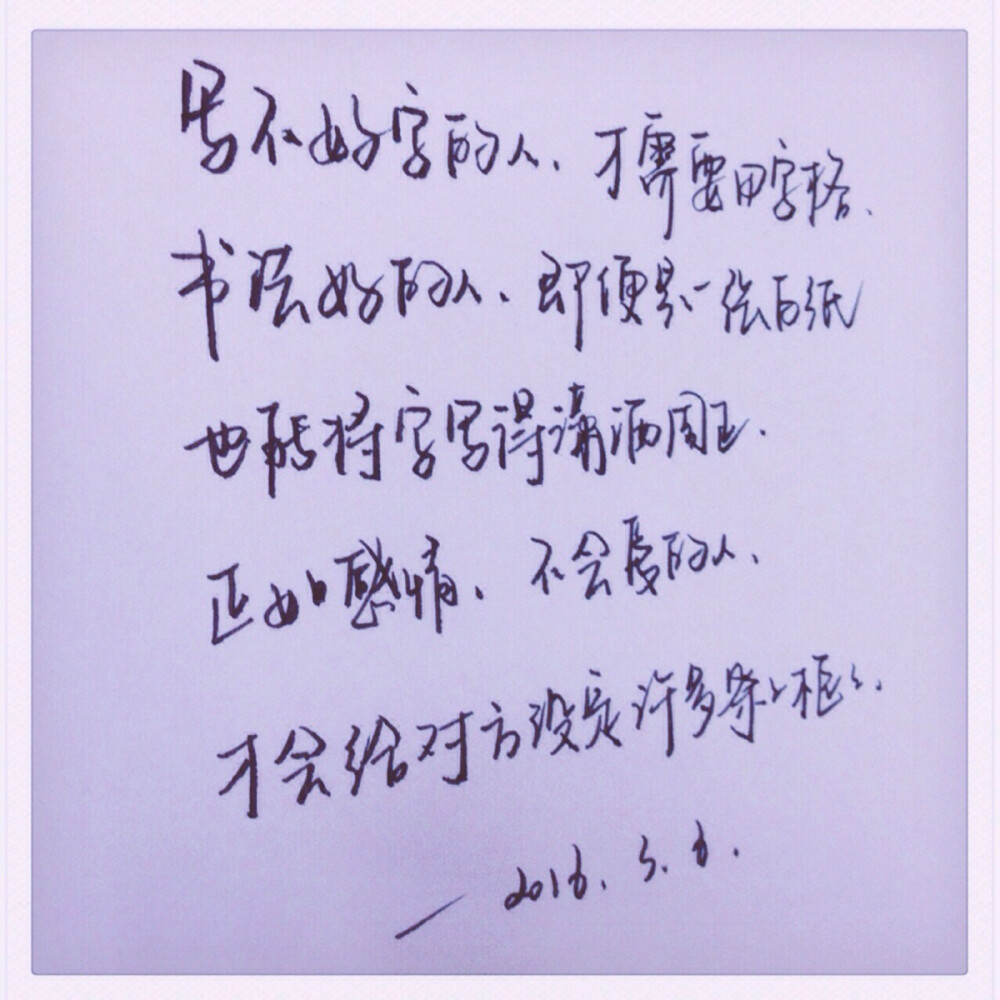 写不好字的人、才需要田字格、
书法好的人、即便是一张白纸
也能将字写得潇洒周正.
正如感情、不会爱的人、
才会给对方设定许多条条框框.
—— 2016. 5. 6.